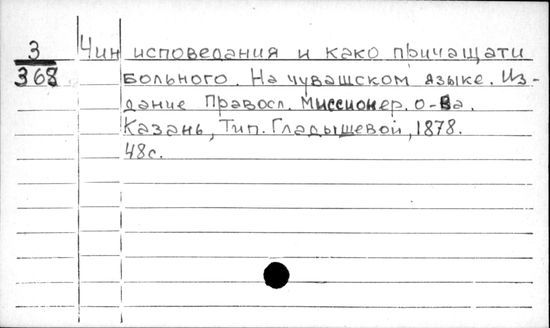 3 Чин исповедания и како причащати
368 больного. На чувашском языке. Из-
дание Правосл. Миссионер. о-ва.
Казань, Тип. Гладышевой, 1878.
48с.